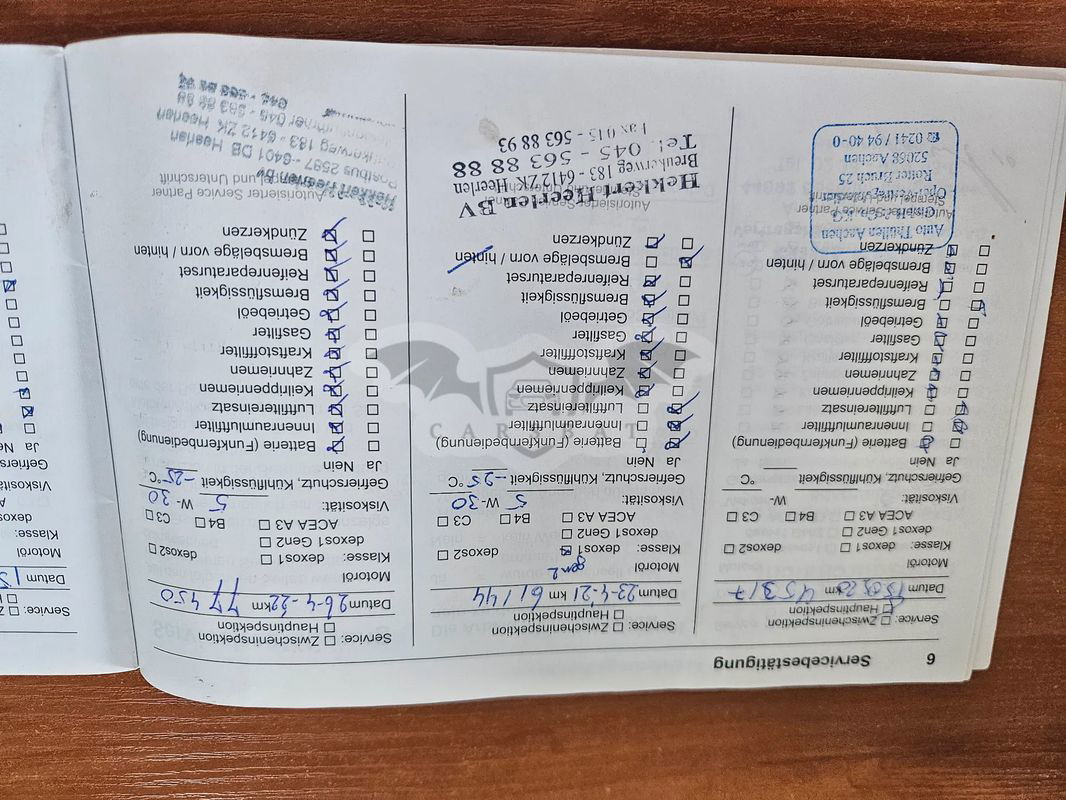 6 Servicebestätigung
Service: Zwischeninspektion
Hauptinspektion
Datum km 45317
Motoröl
Klasse: dexos1 dexos2
dexos1 Gen2
ACEA A3 B4 C3
Viskosität: W-
Gefrierschutz, Kühlflüssigkeit °C
Ja Nein
Batterie (Funkfernbedienung)
Innenraumluftfilter
Luftfiltereinsatz
Keilrippenriemen
Zahnriemen
Kraftstofffilter
Gasfilter
Getriebeöl
Bremsflüssigkeit
Reifenreparaturset
Bremsbeläge vorn / hinten
Zündkerzen
Auto Thüllen Aachen
Rotter Bruch 25
52068 Aachen
☎ 0241 / 94 40-0
Service: Zwischeninspektion
Hauptinspektion
Datum 23-4-21 km 61144
Motoröl gen2
Klasse: dexos1 dexos2
dexos1 Gen2
ACEA A3 B4 C3
Viskosität: 5 W-30
Gefrierschutz, Kühlflüssigkeit -25 °C
Ja Nein
Batterie (Funkfernbedienung)
Innenraumluftfilter
Luftfiltereinsatz
Keilrippenriemen
Zahnriemen
Kraftstofffilter
Gasfilter
Getriebeöl
Bremsflüssigkeit
Reifenreparaturset
Bremsbeläge vorn / hinten
Zündkerzen
Autorisierter Service
Hekkert Heerlen BV
Breukerweg 183 - 6412 ZK Heerlen
Tel. 045 - 563 88 88
Fax 045 - 563 88 93
Service: Zwischeninspektion
Hauptinspektion
Datum 26-4-22 km 77450
Motoröl
Klasse: dexos1 dexos2
dexos1 Gen2
ACEA A3 B4 C3
Viskosität: 5 W-30
Gefrierschutz, Kühlflüssigkeit -25 °C
Ja Nein
Batterie (Funkfernbedienung)
Innenraumluftfilter
Luftfiltereinsatz
Keilrippenriemen
Zahnriemen
Kraftstofffilter
Gasfilter
Getriebeöl
Bremsflüssigkeit
Reifenreparaturset
Bremsbeläge vorn / hinten
Zündkerzen
Autorisierter Service Partner
Stempel und Unterschrift
Hekkert Heerlen BV
Postbus 2597 - 6401 DB Heerlen
Breukerweg 183 - 6412 ZK Heerlen
Service:
Datum
Motoröl
Klasse:
Viskosität
Ja
CAR BAT